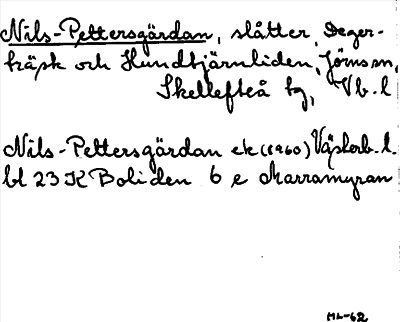 Nils-Pettersgärdan, slåtter, Deger-
träsk och Hundtjärnliden, Jörns sn,
Skellefteå tg, Vb. l
Nils-Pettersgärdan ek (1960) Västerb. l.
bl 23 K Boliden 6 e Marramyran
ML-62